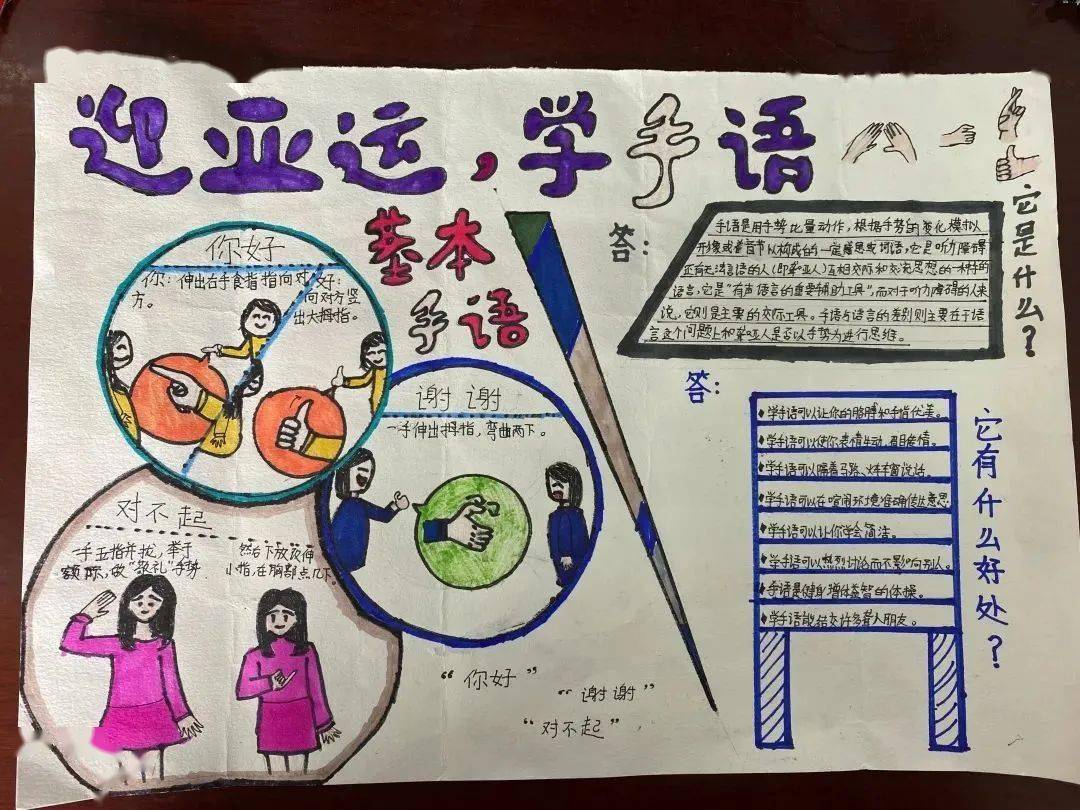 迎亚运，学手语
基本
手语
你好
你：伸出右手食指指向对方。
好：向对方竖出大拇指。
谢谢
一手伸出拇指，弯曲两下。
对不起
一手五指并拢，举于
额际，做“敬礼”手势
然后下放改伸
小指，在胸部点几下。
“你好”
“谢谢”
“对不起”
它是什么？
答：
手语是用手势比量动作，根据手势的变化模拟
形像或者音节以构成的一定意思或词语，它是听力障碍
语言，它是“有声语言的重要辅助工具”，而对于听力障碍的人来
说，它则是主要的交际工具。手语与语言的差别则主要在于语
言这个问题上和聋哑人是否以手势为进行思维。
它有什么好处？
答：
学手语可以让你的胳膊和手指优美。
学手语可以使你表情生动，
学手语可以隔着马路、窗说话。
学手语可以在喧闹环境准确传达意思
学手语可以让你学会简洁。
学手语可以热烈讨论而不影响别人。
手语是健身增体益智的体操。
学手语能结交许多聋人朋友。